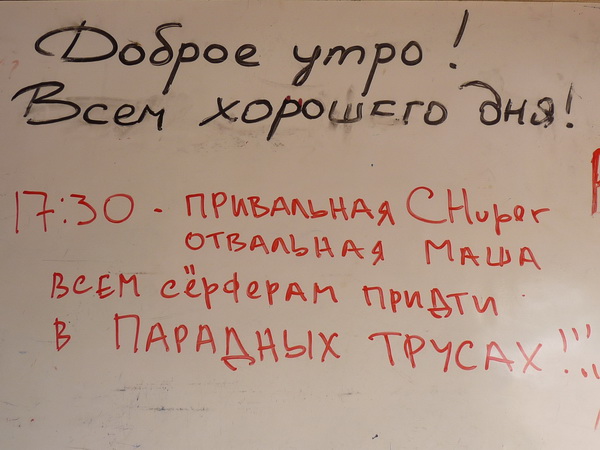 Доброе утро!
Всем хорошего дня!
17:30 - ПРИВАЛЬНАЯ CHuper
ОТВАЛЬНАЯ МАША
ВСЕМ СЁРФЕРАМ ПРИДТИ
В ПАРАДНЫХ ТРУСАХ!!!